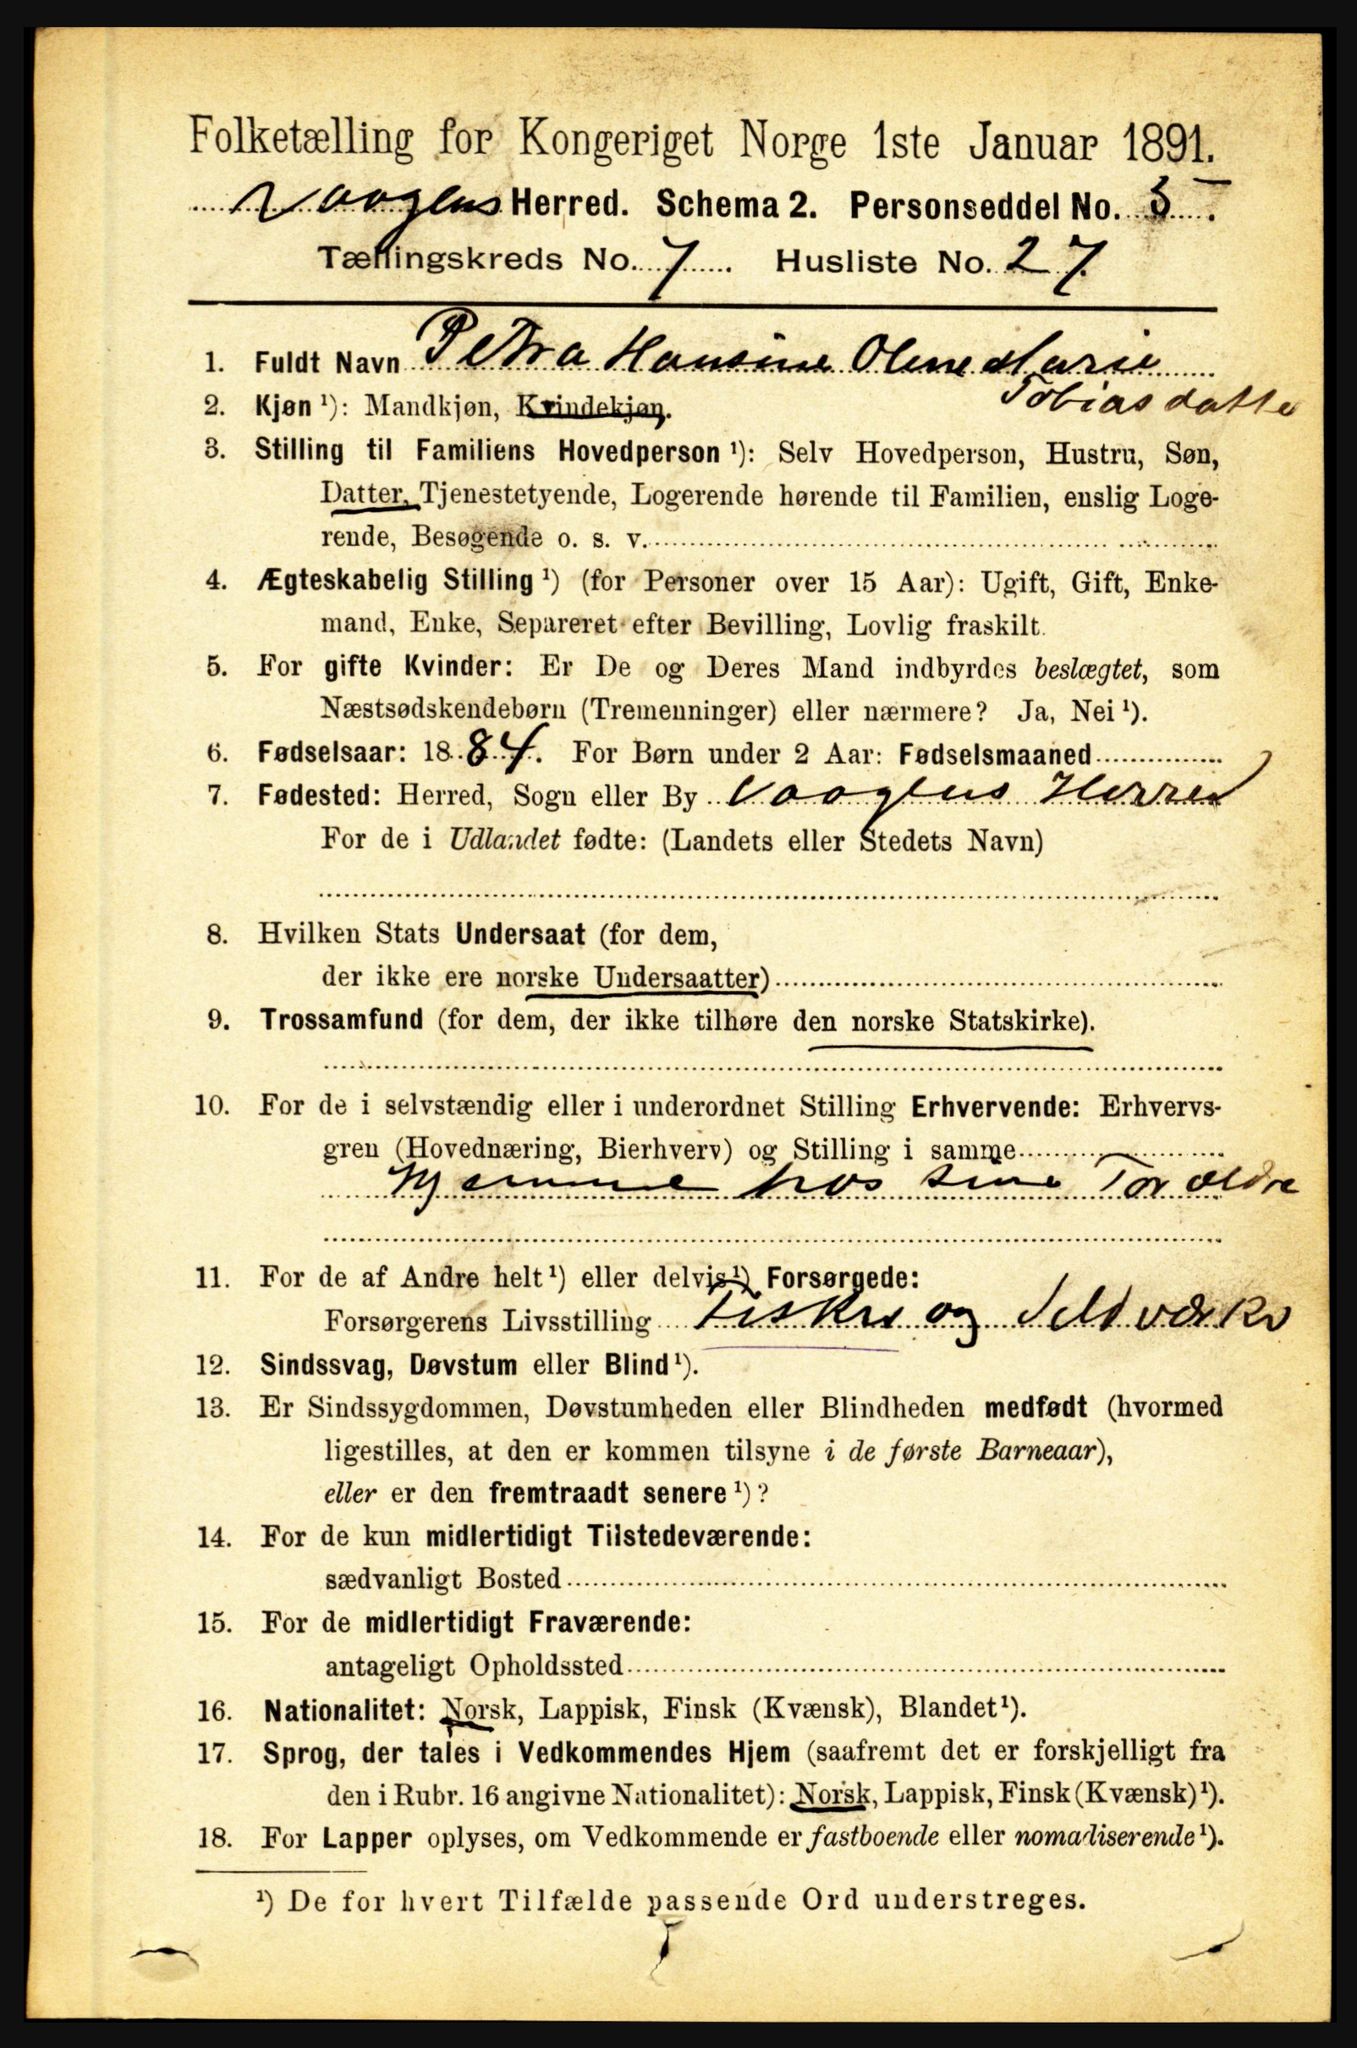 Folketælling for Kongeriget Norge 1ste Januar 1891.
Vaagens Herred. Schema 2. Personseddel No. 5.
Tællingskreds No. 7. Husliste No. 27.
1. Fuldt Navn Petra Hansine Oline Marie
Tobiasdatte
2. Kjøn ¹): Mandkjøn, Kvindekjøn.
3. Stilling til Familiens Hovedperson ¹): Selv Hovedperson, Hustru, Søn,
Datter, Tjenestetyende, Logerende hørende til Familien, enslig Loge-
rende, Besøgende o. s. v.
4. Ægteskabelig Stilling ¹) (for Personer over 15 Aar): Ugift, Gift, Enke-
mand, Enke, Separeret efter Bevilling, Lovlig fraskilt.
5. For gifte Kvinder: Er De og Deres Mand indbyrdes beslægtet, som
Næstsødskendebørn (Tremenninger) eller nærmere? Ja, Nei ¹).
6. Fødselsaar: 1884. For Børn under 2 Aar: Fødselsmaaned
7. Fødested: Herred, Sogn eller By Vaagens Herred
For de i Udlandet fødte: (Landets eller Stedets Navn)
8. Hvilken Stats Undersaat (for dem,
der ikke ere norske Undersaatter)
9. Trossamfund (for dem, der ikke tilhøre den norske Statskirke).
10. For de i selvstændig eller i underordnet Stilling Erhvervende: Erhvervs-
gren (Hovednæring, Bierhverv) og Stilling i samme
Hjemme hos sine Forældre
11. For de af Andre helt ¹) eller delvis ¹) Forsørgede:
Forsørgerens Livsstilling Fisker og
12. Sindssvag, Døvstum eller Blind ¹).
13. Er Sindssygdommen, Døvstumheden eller Blindheden medfødt (hvormed
ligestilles, at den er kommen tilsyne i de første Barneaar),
eller er den fremtraadt senere ¹)?
14. For de kun midlertidigt Tilstedeværende:
sædvanligt Bosted
15. For de midlertidigt Fraværende:
antageligt Opholdssted
16. Nationalitet: Norsk, Lappisk, Finsk (Kvænsk), Blandet ¹).
17. Sprog, der tales i Vedkommendes Hjem (saafremt det er forskjelligt fra
den i Rubr. 16 angivne Nationalitet): Norsk, Lappisk, Finsk (Kvænsk) ¹).
18. For Lapper oplyses, om Vedkommende er fastboende eller nomadiserende ¹).
¹) De for hvert Tilfælde passende Ord understreges.